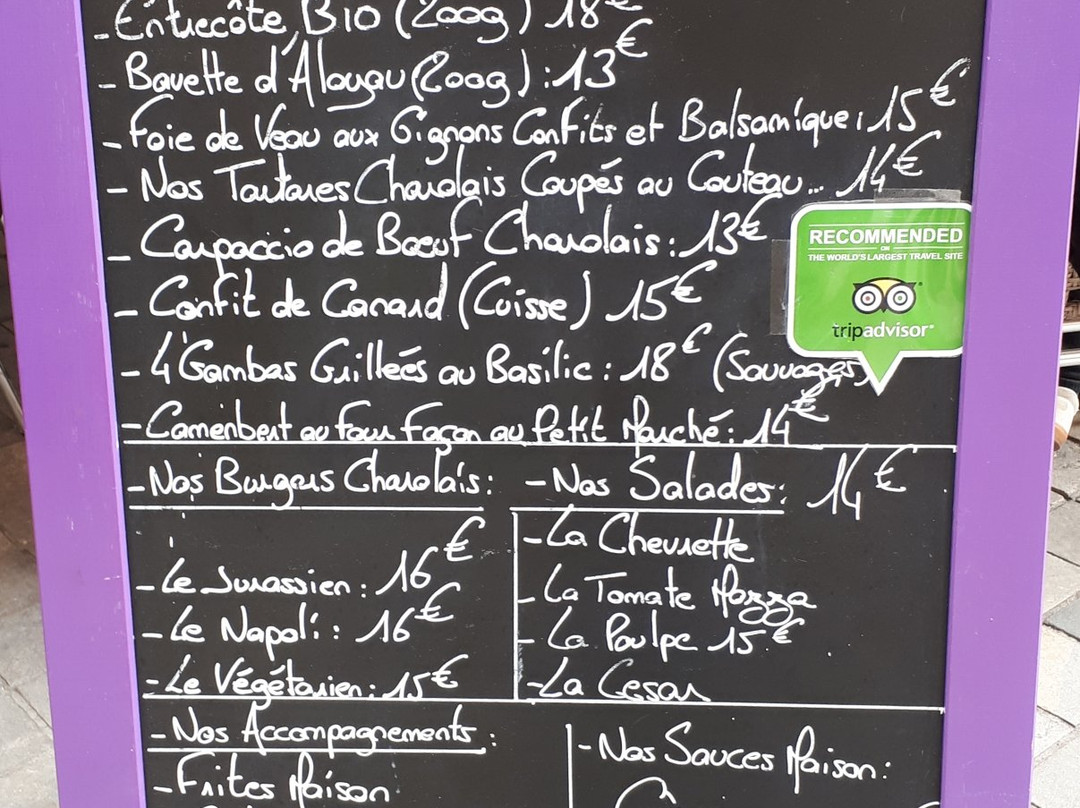 - Entrecôte Bio (200g) 18€
- Bavette d'Aloyau (200g) : 13€
- Foie de Veau aux Oignons Confits et Balsamique : 15€
- Nos Tartares Charolais Coupés au Couteau... 14€
- Carpaccio de Bœuf Charolais : 13€
- Confit de Canard (Cuisse) 15€
- 4 Gambas Grillées au Basilic : 18€ (Sauvages)
- Camembert au four Façon au Petit Marché : 14€
RECOMMENDED
ON
THE WORLD'S LARGEST TRAVEL SITE
tripadvisor®
- Nos Burgers Charolais :
- Le Jurassien : 16€
- Le Napoli : 16€
- Le Végétarien : 15€
- Nos Salades : 14€
- La Chevrette
- La Tomate Mozza
- La Poulpe 15€
- La Cesar
- Nos Accompagnements :
- Frites Maison
- Nos Sauces Maison :